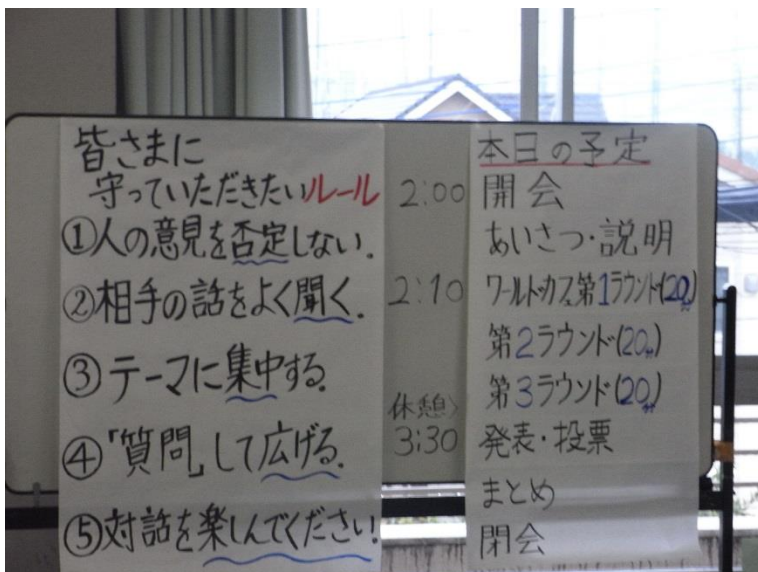 皆さまに
守っていただきたいルール
①人の意見を否定しない.
②相手の話をよく聞く.
③テーマに集中する.
④「質問」して広げる.
⑤対話を楽しんでください!
本日の予定
2:00 開会
あいさつ・説明
2:10 ワールドカフェ第1ラウンド(20分)
第2ラウンド(20分)
第3ラウンド(20分)
休憩〉
3:30 発表・投票
まとめ
閉会